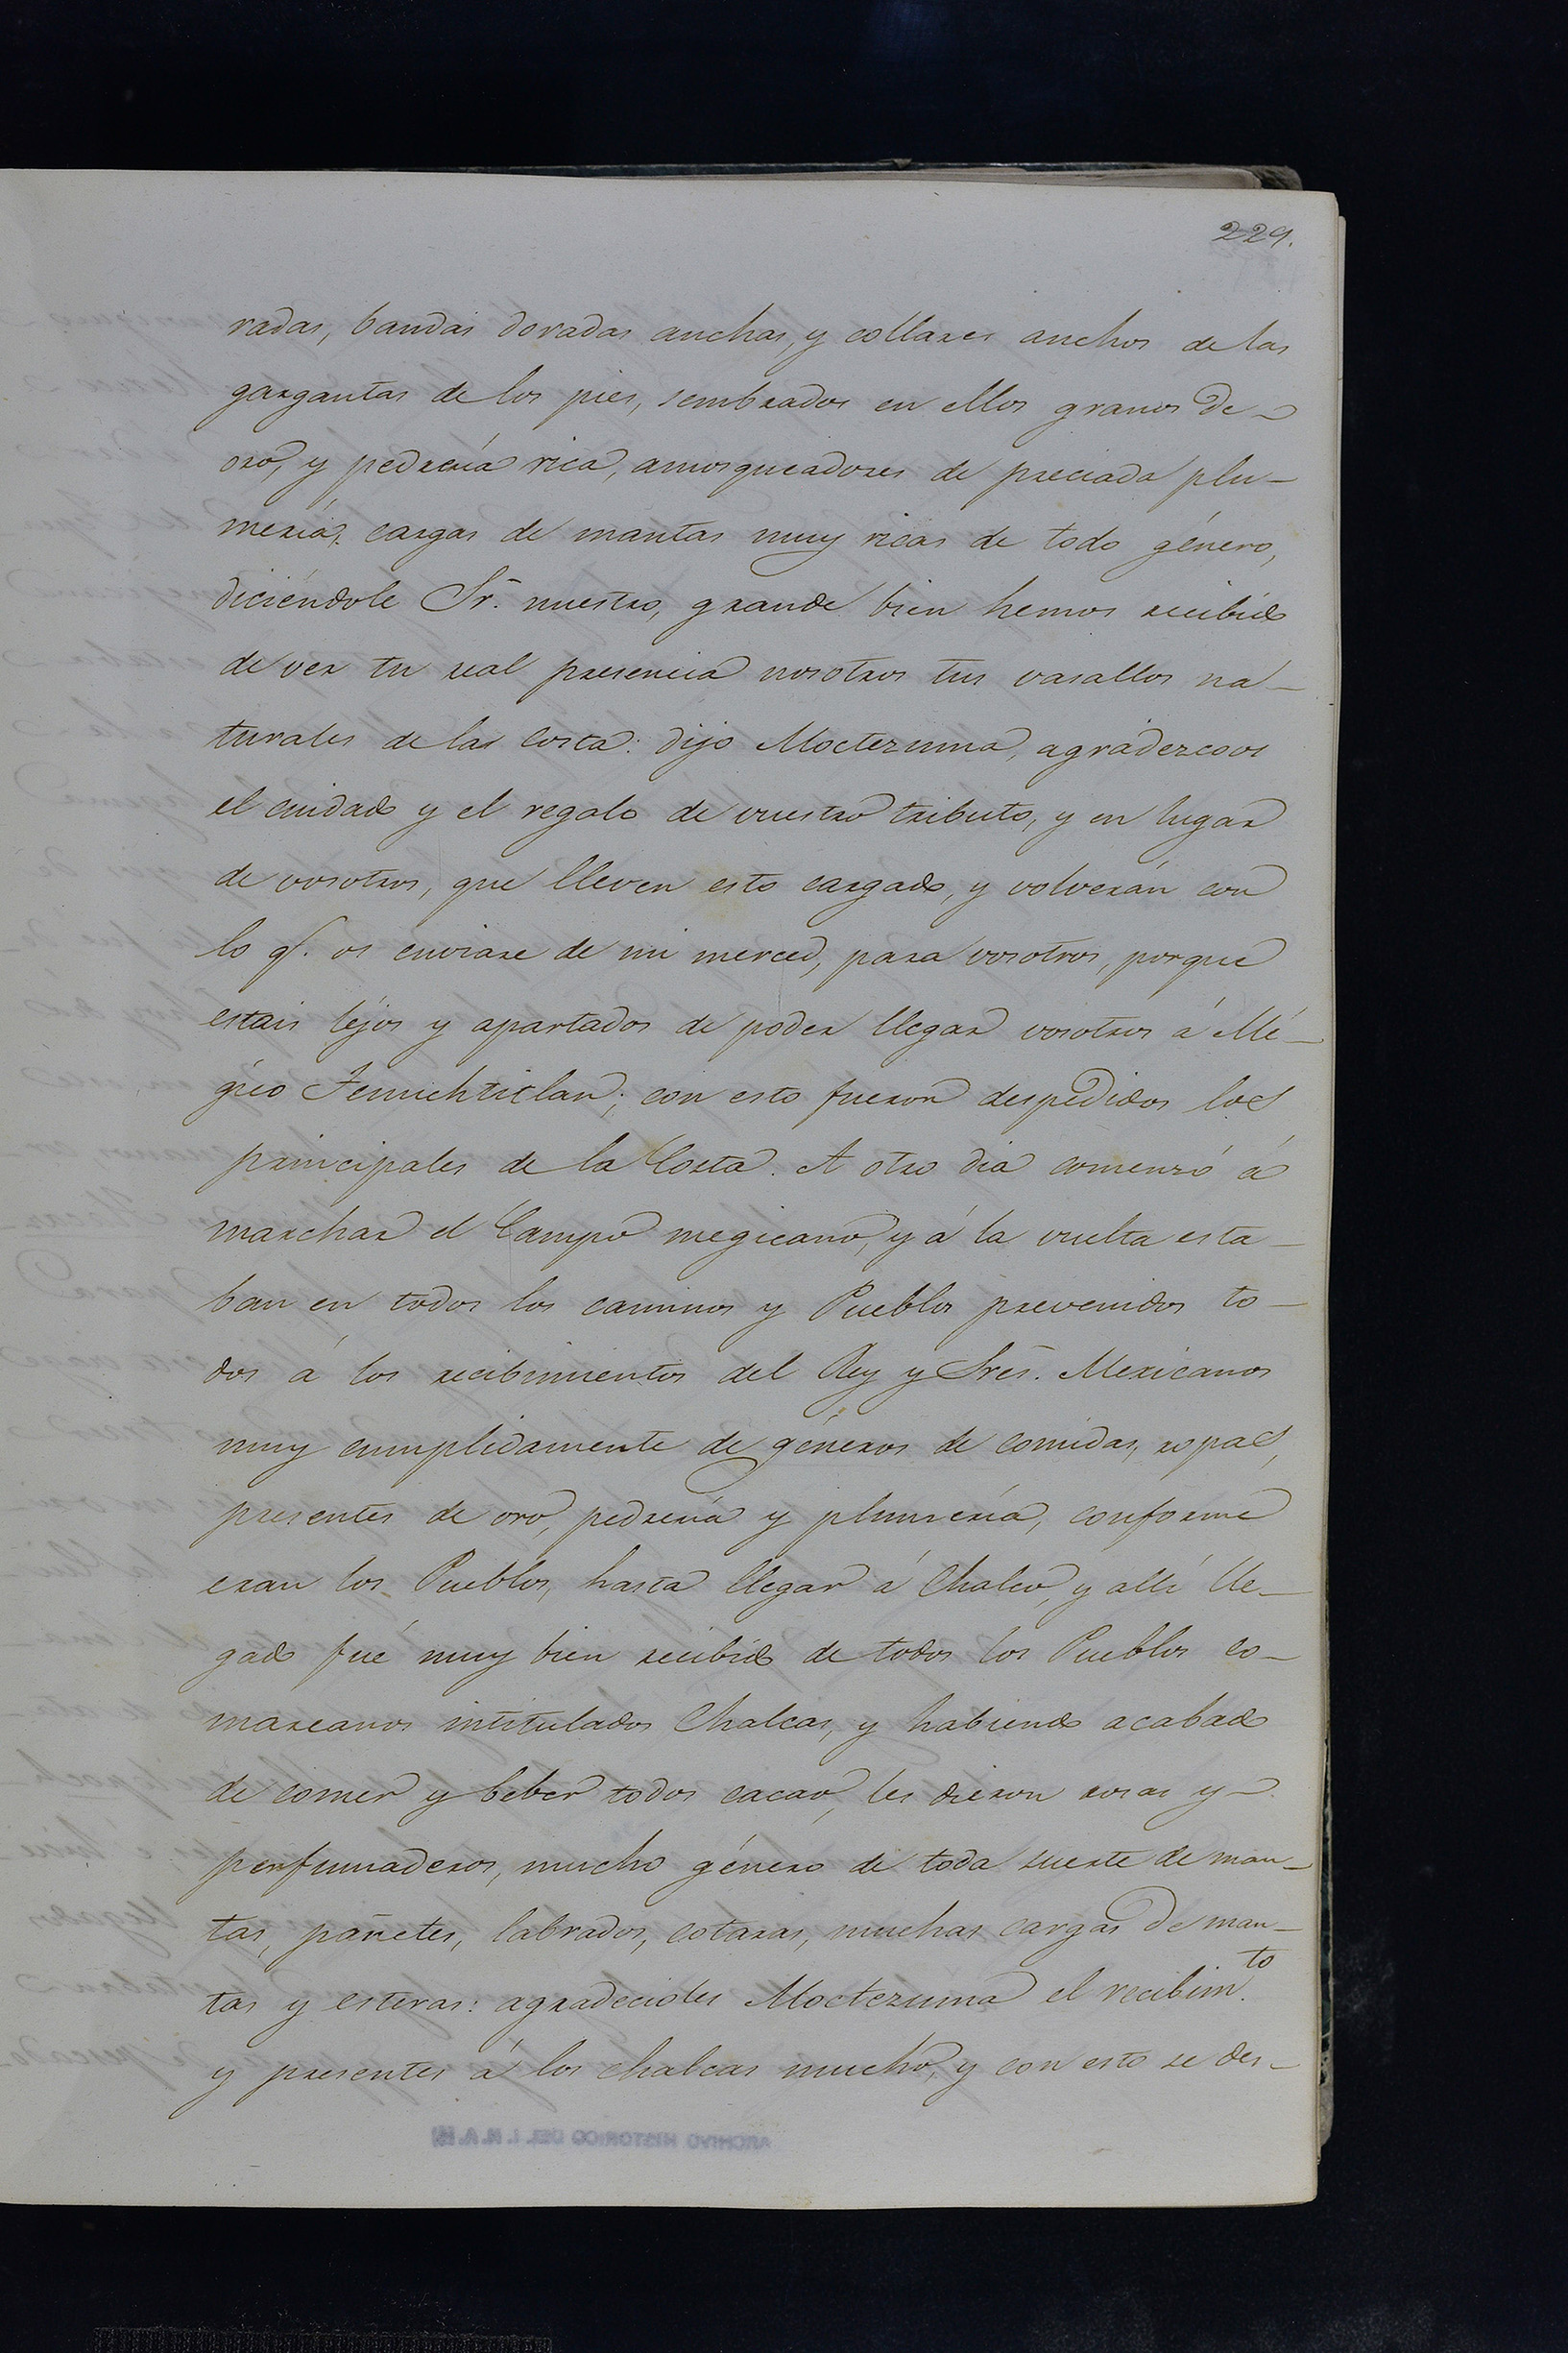 229.
radas, bandas doradas anchas, y collares anchos de las
gargantas de los pies, sembrados en ellos granos de
oro, y pedrería rica, amosqueadores de preciada plu-
mería, cargas de mantas muy ricas de todo género,
diciéndole Sr. nuestro, grande bien hemos recibido
de ver tu real presencia nosotros tus vasallos na-
turales de las costa: dijo Moctezuma, agradezcoos
el cuidado y el regalo de vuestro tributo, y en lugar
de vosotros, que lleven esto cargado, y volverán con
lo q. os enviare de mi merced, para vosotros, porque
estais léjos y apartados de poder llegar vosotros á Mé-
gico Tenuchtitlan; con esto fueron despedidos los
principales de la Costa. A otro dia comenzó á
marchar el Campo megicano, y á la vuelta esta-
ban en todos los caminos y Pueblos prevenidos to-
dos á los recibimientos del Rey y Sres. Mexicanos
muy cumplidamente de géneros de comidas, ropas,
presentes de oro, pedrería y plumería, conforme
eran los Pueblos, hasta llegar á Chalco, y allí lle-
gado fué muy bien recibido de todos los Pueblos co-
marcanos intitulados Chalcas, y habiendo acabado
de comer y beber todos cacao, les dieron rosas y
perfumaderos, mucho género de toda suerte de man-
tas, pañetes, labrados, cotaras, muchas cargas de man-
tas y esteras: agradecioles Moctezuma el recibim.to
y presentes á los chalcas mucho, y con esto se des-
ARCHIVO HISTORICO DEL I.N.A.H.